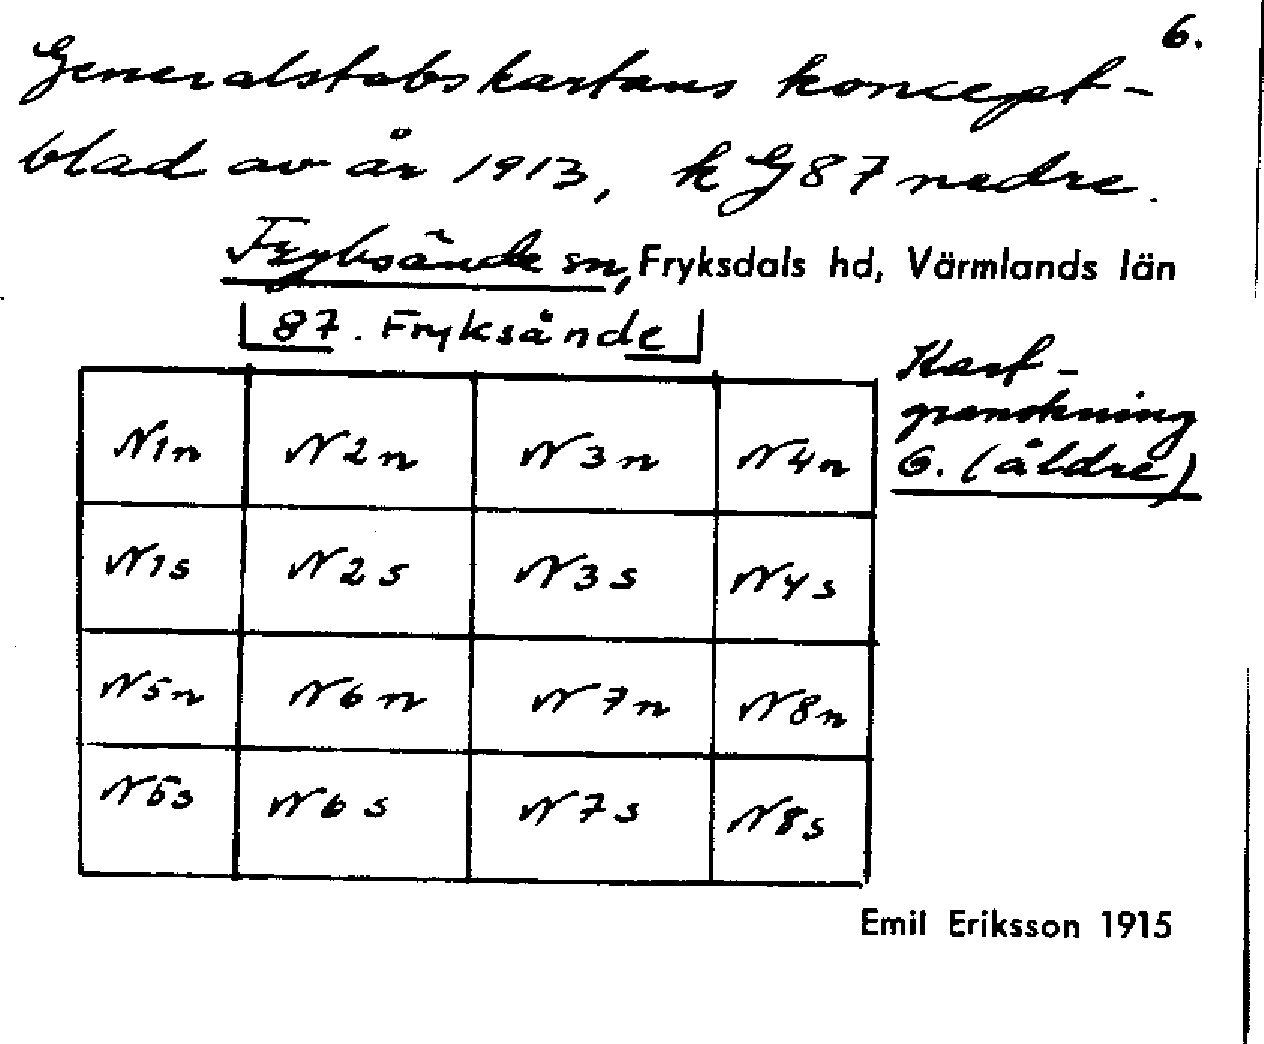 6.
Generalstabskartans koncept-
blad av år 1913, k G 87 nedre.
Fryksände sn, Fryksdals hd, Värmlands län
87. Fryksände
Kart-
granskning
6. (äldre)
N1n N2n N3n N4n
N1s N2s N3s N4s
N5n N6n N7n N8n
N5s N6s N7s N8s
Emil Eriksson 1915